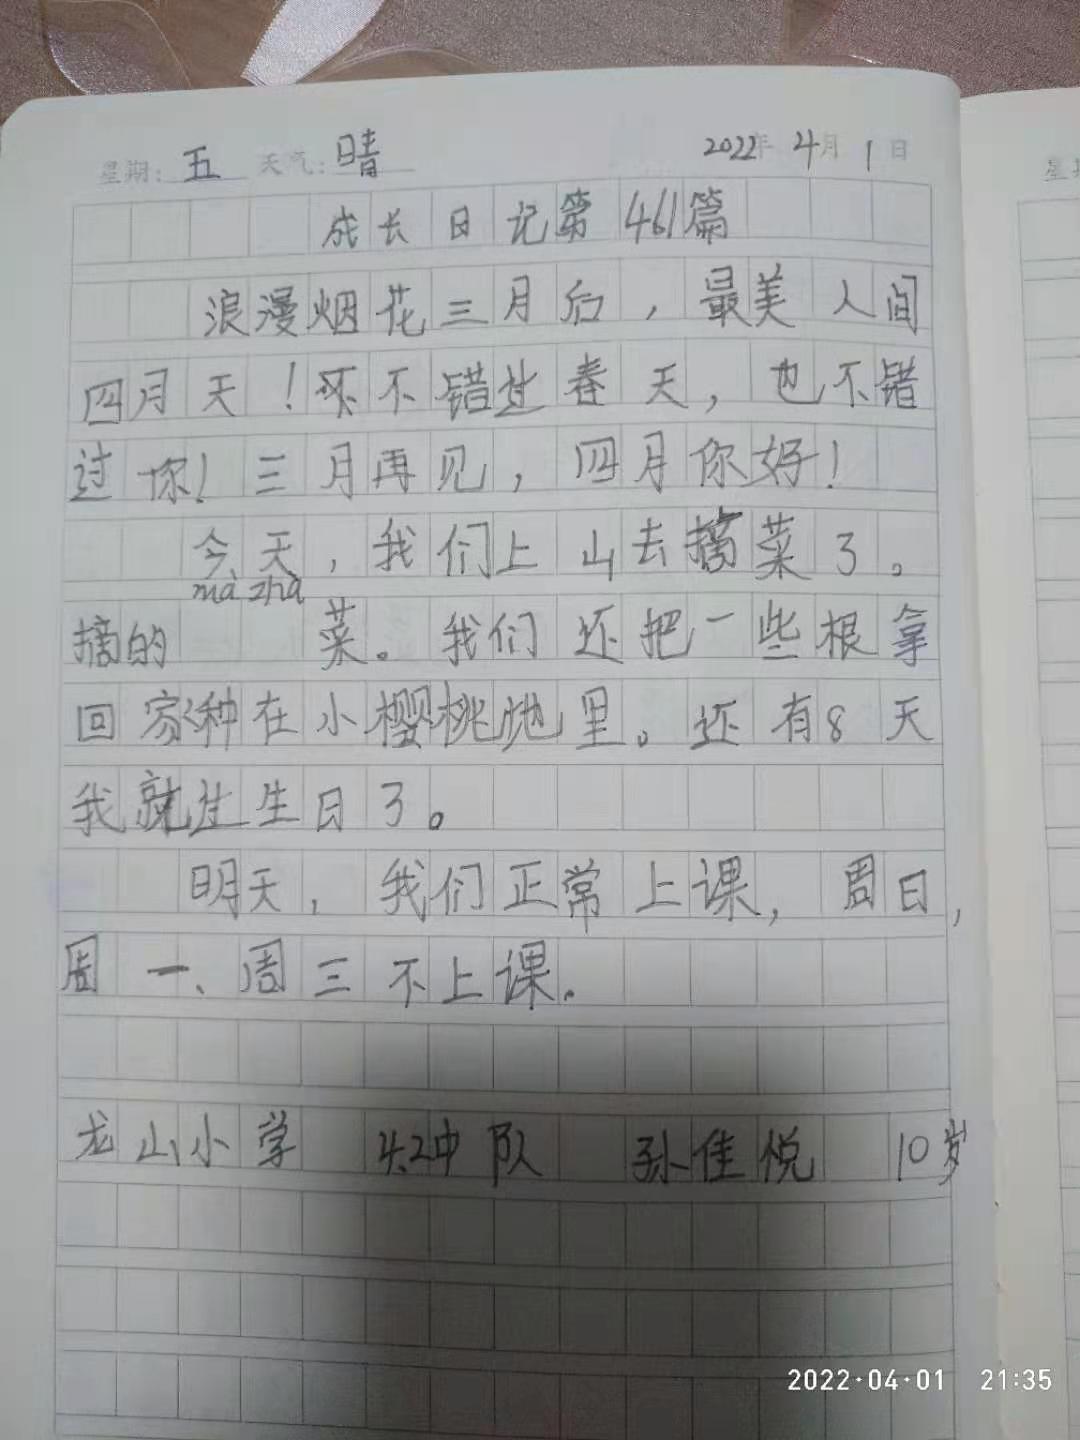 星期: 五 天气: 晴 2022年 4月 1日
成长日记第461篇
浪漫烟花三月后，最美人间
四月天！不错过春天，也不错
过你！三月再见，四月你好！
今天，我们上山去摘菜了。
mà zhà
摘的 菜。我们还把一些根拿
回家种在小樱桃地里。还有8天
我就过生日了。
明天，我们正常上课，周日，
周一、周三不上课.
龙山小学 4.2中队 孙佳悦 10岁
2022·04·01 21:35